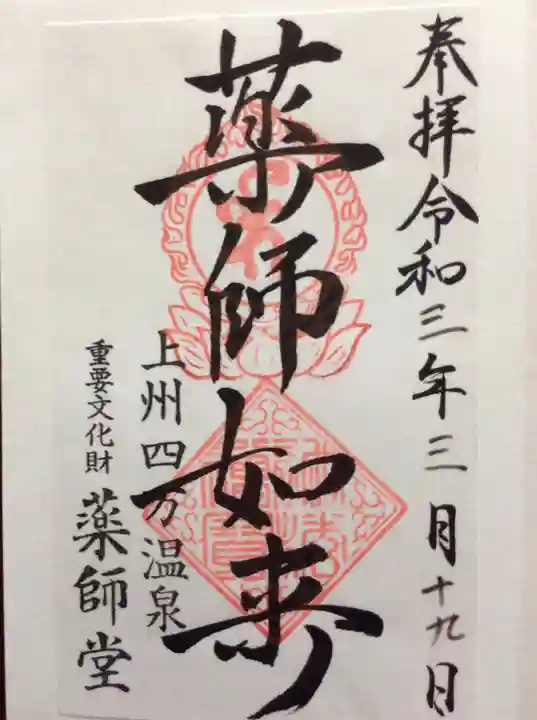 奉拝令和三年三月十九日
薬師如来
上州四万温泉
重要文化財 薬師堂